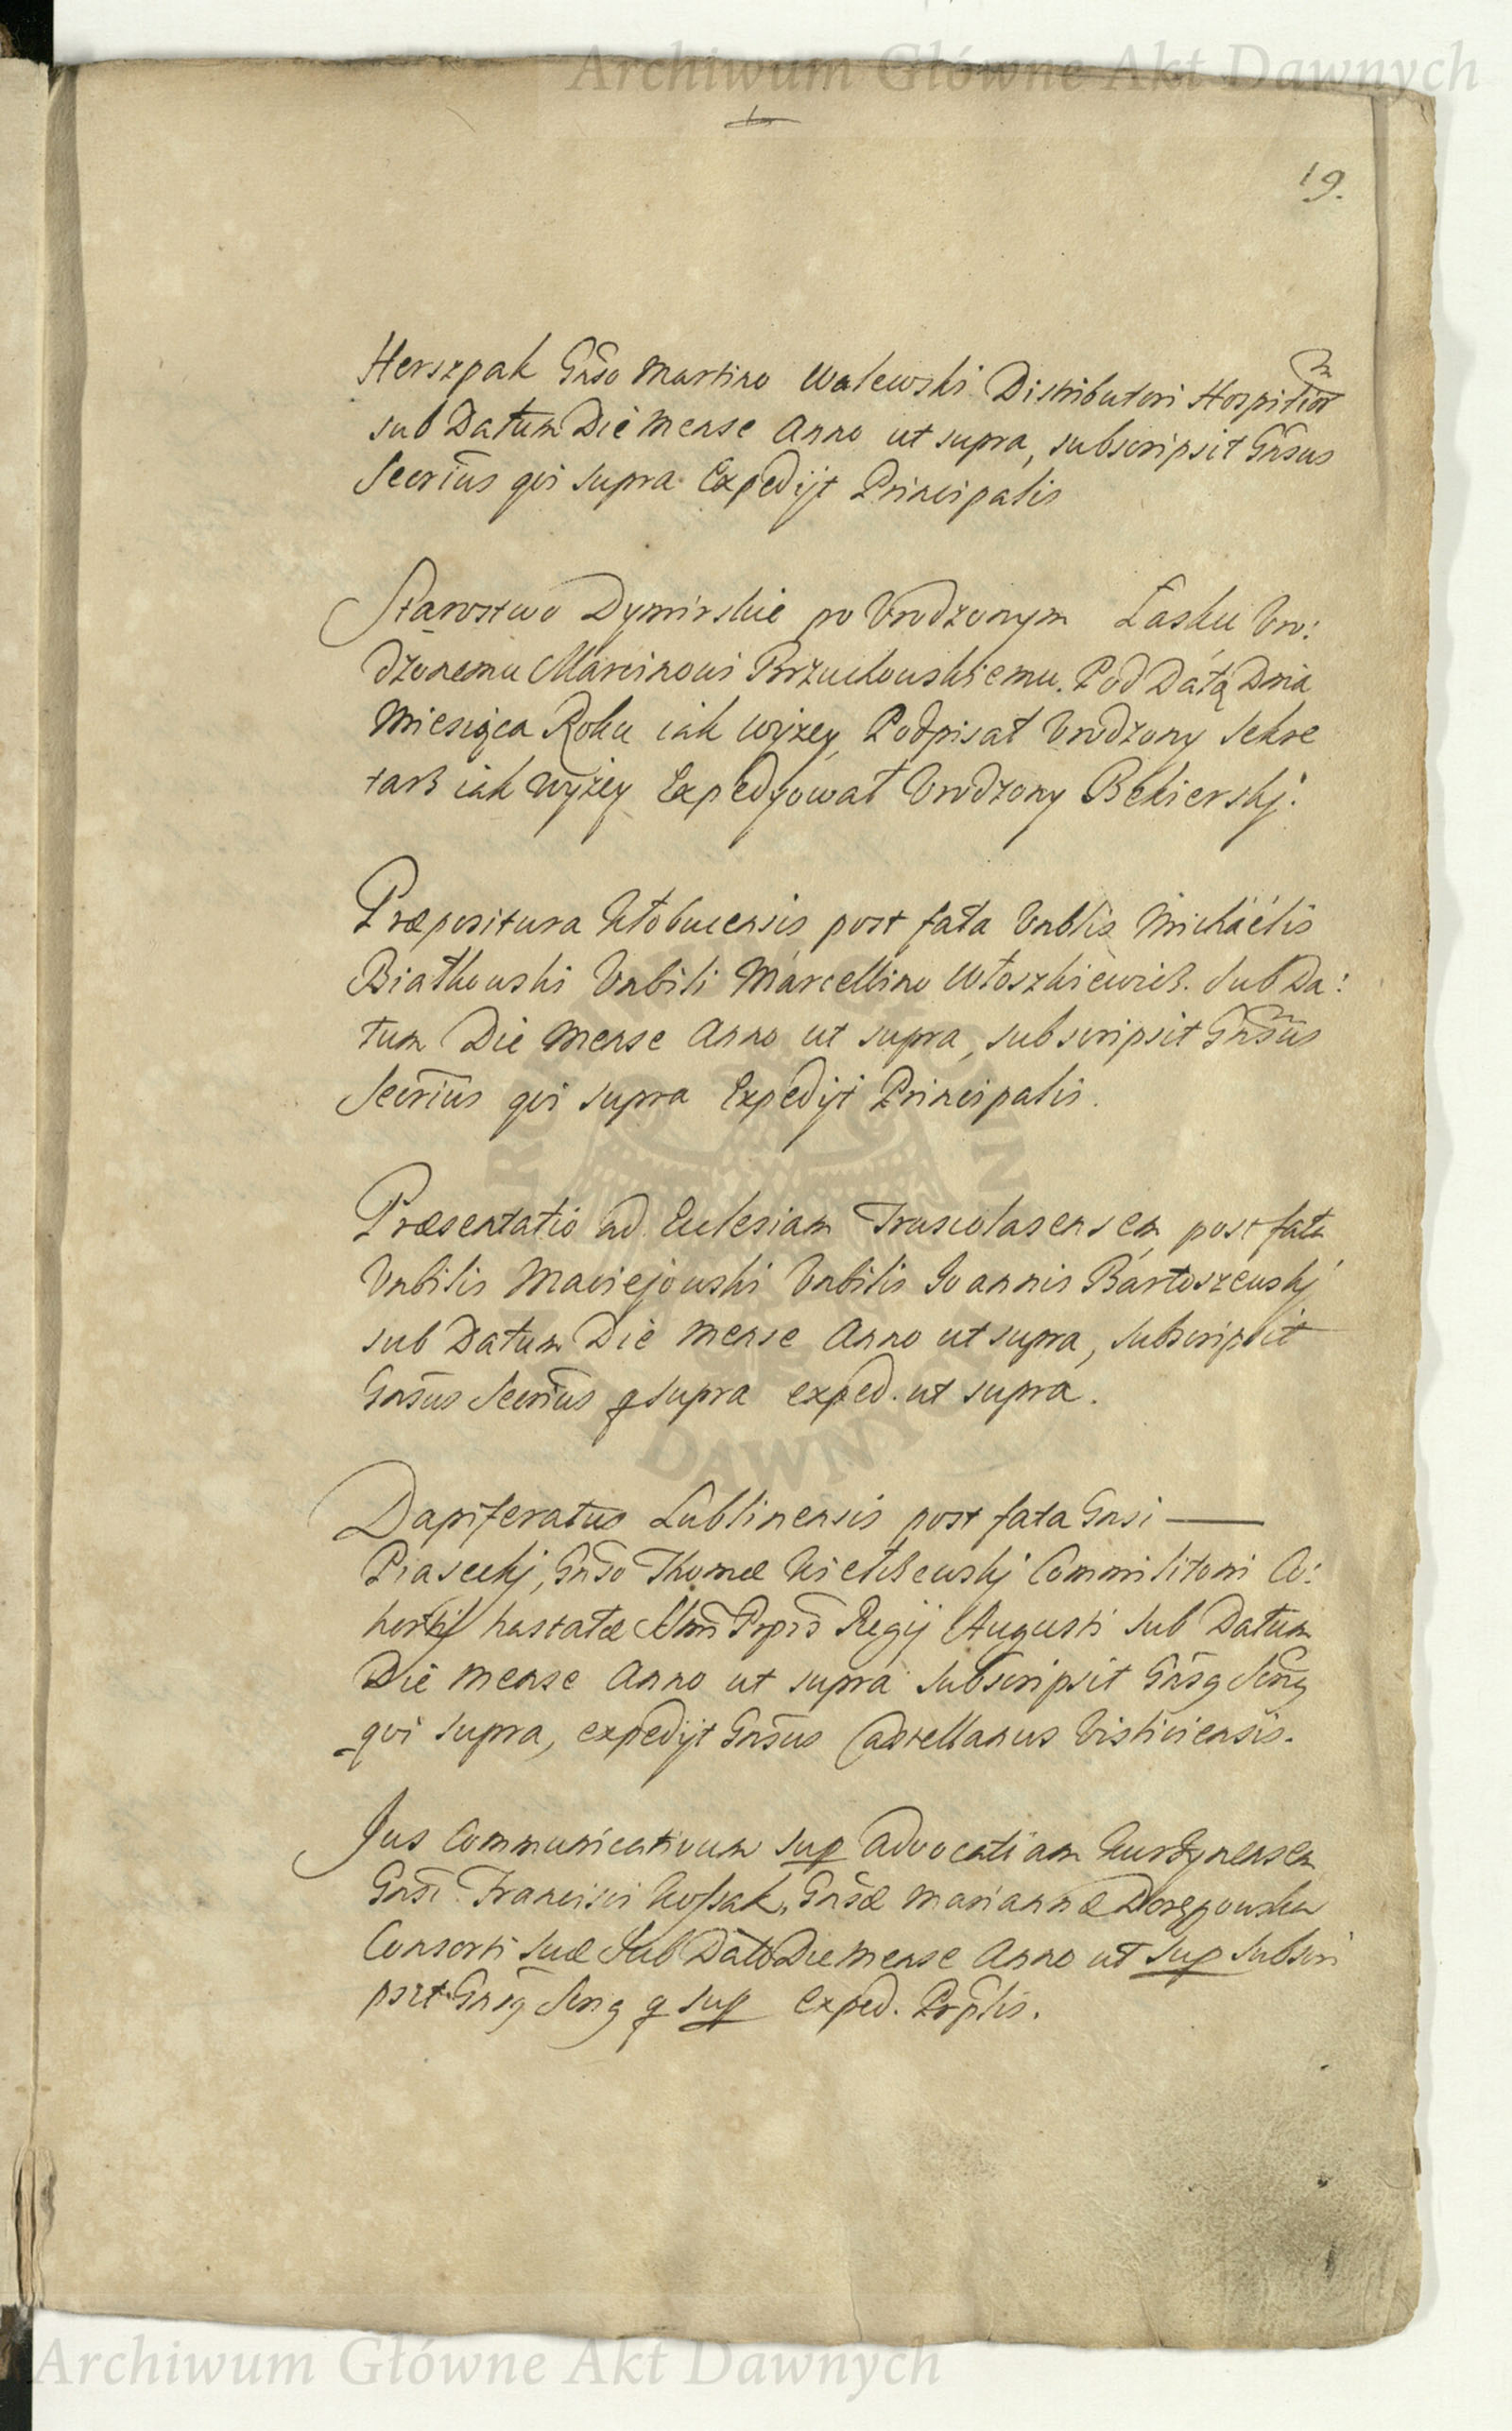 Archiwum Główne Akt Dawnych
19.
Herszpak Gnso Martino Walewski Distributori Hospitior
sub Datum Die Mense Anno ut supra, subscripsit Gnsus
Secrius qvi supra Expedijt Principalis
Starostwo Dymirskie po Vrodzonym Łasku Vro:
dzonemu Marcinowi Brzuchowskiemu. Pod Datą Dnia
Miesiąca Roku iak wyżey Podpisał Vrodzony Sekre
tarz iak wyżey Expedyował Vrodzony Bekierskj.
Præpositura Kłobucensis post fata Vnblis Michaelis
Białkowski Vnbili Marcellino Włoszkiewicz. Sub Da:
tum Die Mense Anno ut supra, subscripsit Gnsus
Secrius qvi supra Expedijt Principalis.
Præsentatio ad Ecclesiam Truscolasensem, post fata
Vnbilis Maciejowski Vnbilis Joannis Bartoszewskj
sub Datum Die Mense Anno ut supra, subscripsit
Gnsus Secrius q supra exped. ut supra.
Dapiferatus Lublinensis post fata Gnsi —
Piaseckj, Gnso Thomæ Kietczewskj Commilitoni Co:
hortis hastatæ Regij Augusti sub Datum
Die Mense Anno ut supra subscripsit Gnsq
qvi supra, expedijt Gnsus Castellanus Visliciensis.
Jus Communicativum sup Advocatiam Kurzynensem
Gnsi Francisci Kossak, Gnsæ Mariannæ
Consorti suæ Sub Dato Die Mense Anno ut sup subscri
psit Gnsq q sup exped. Prplis.
ARCHIWUM GŁÓWNE AKT DAWNYCH
Archiwum Główne Akt Dawnych